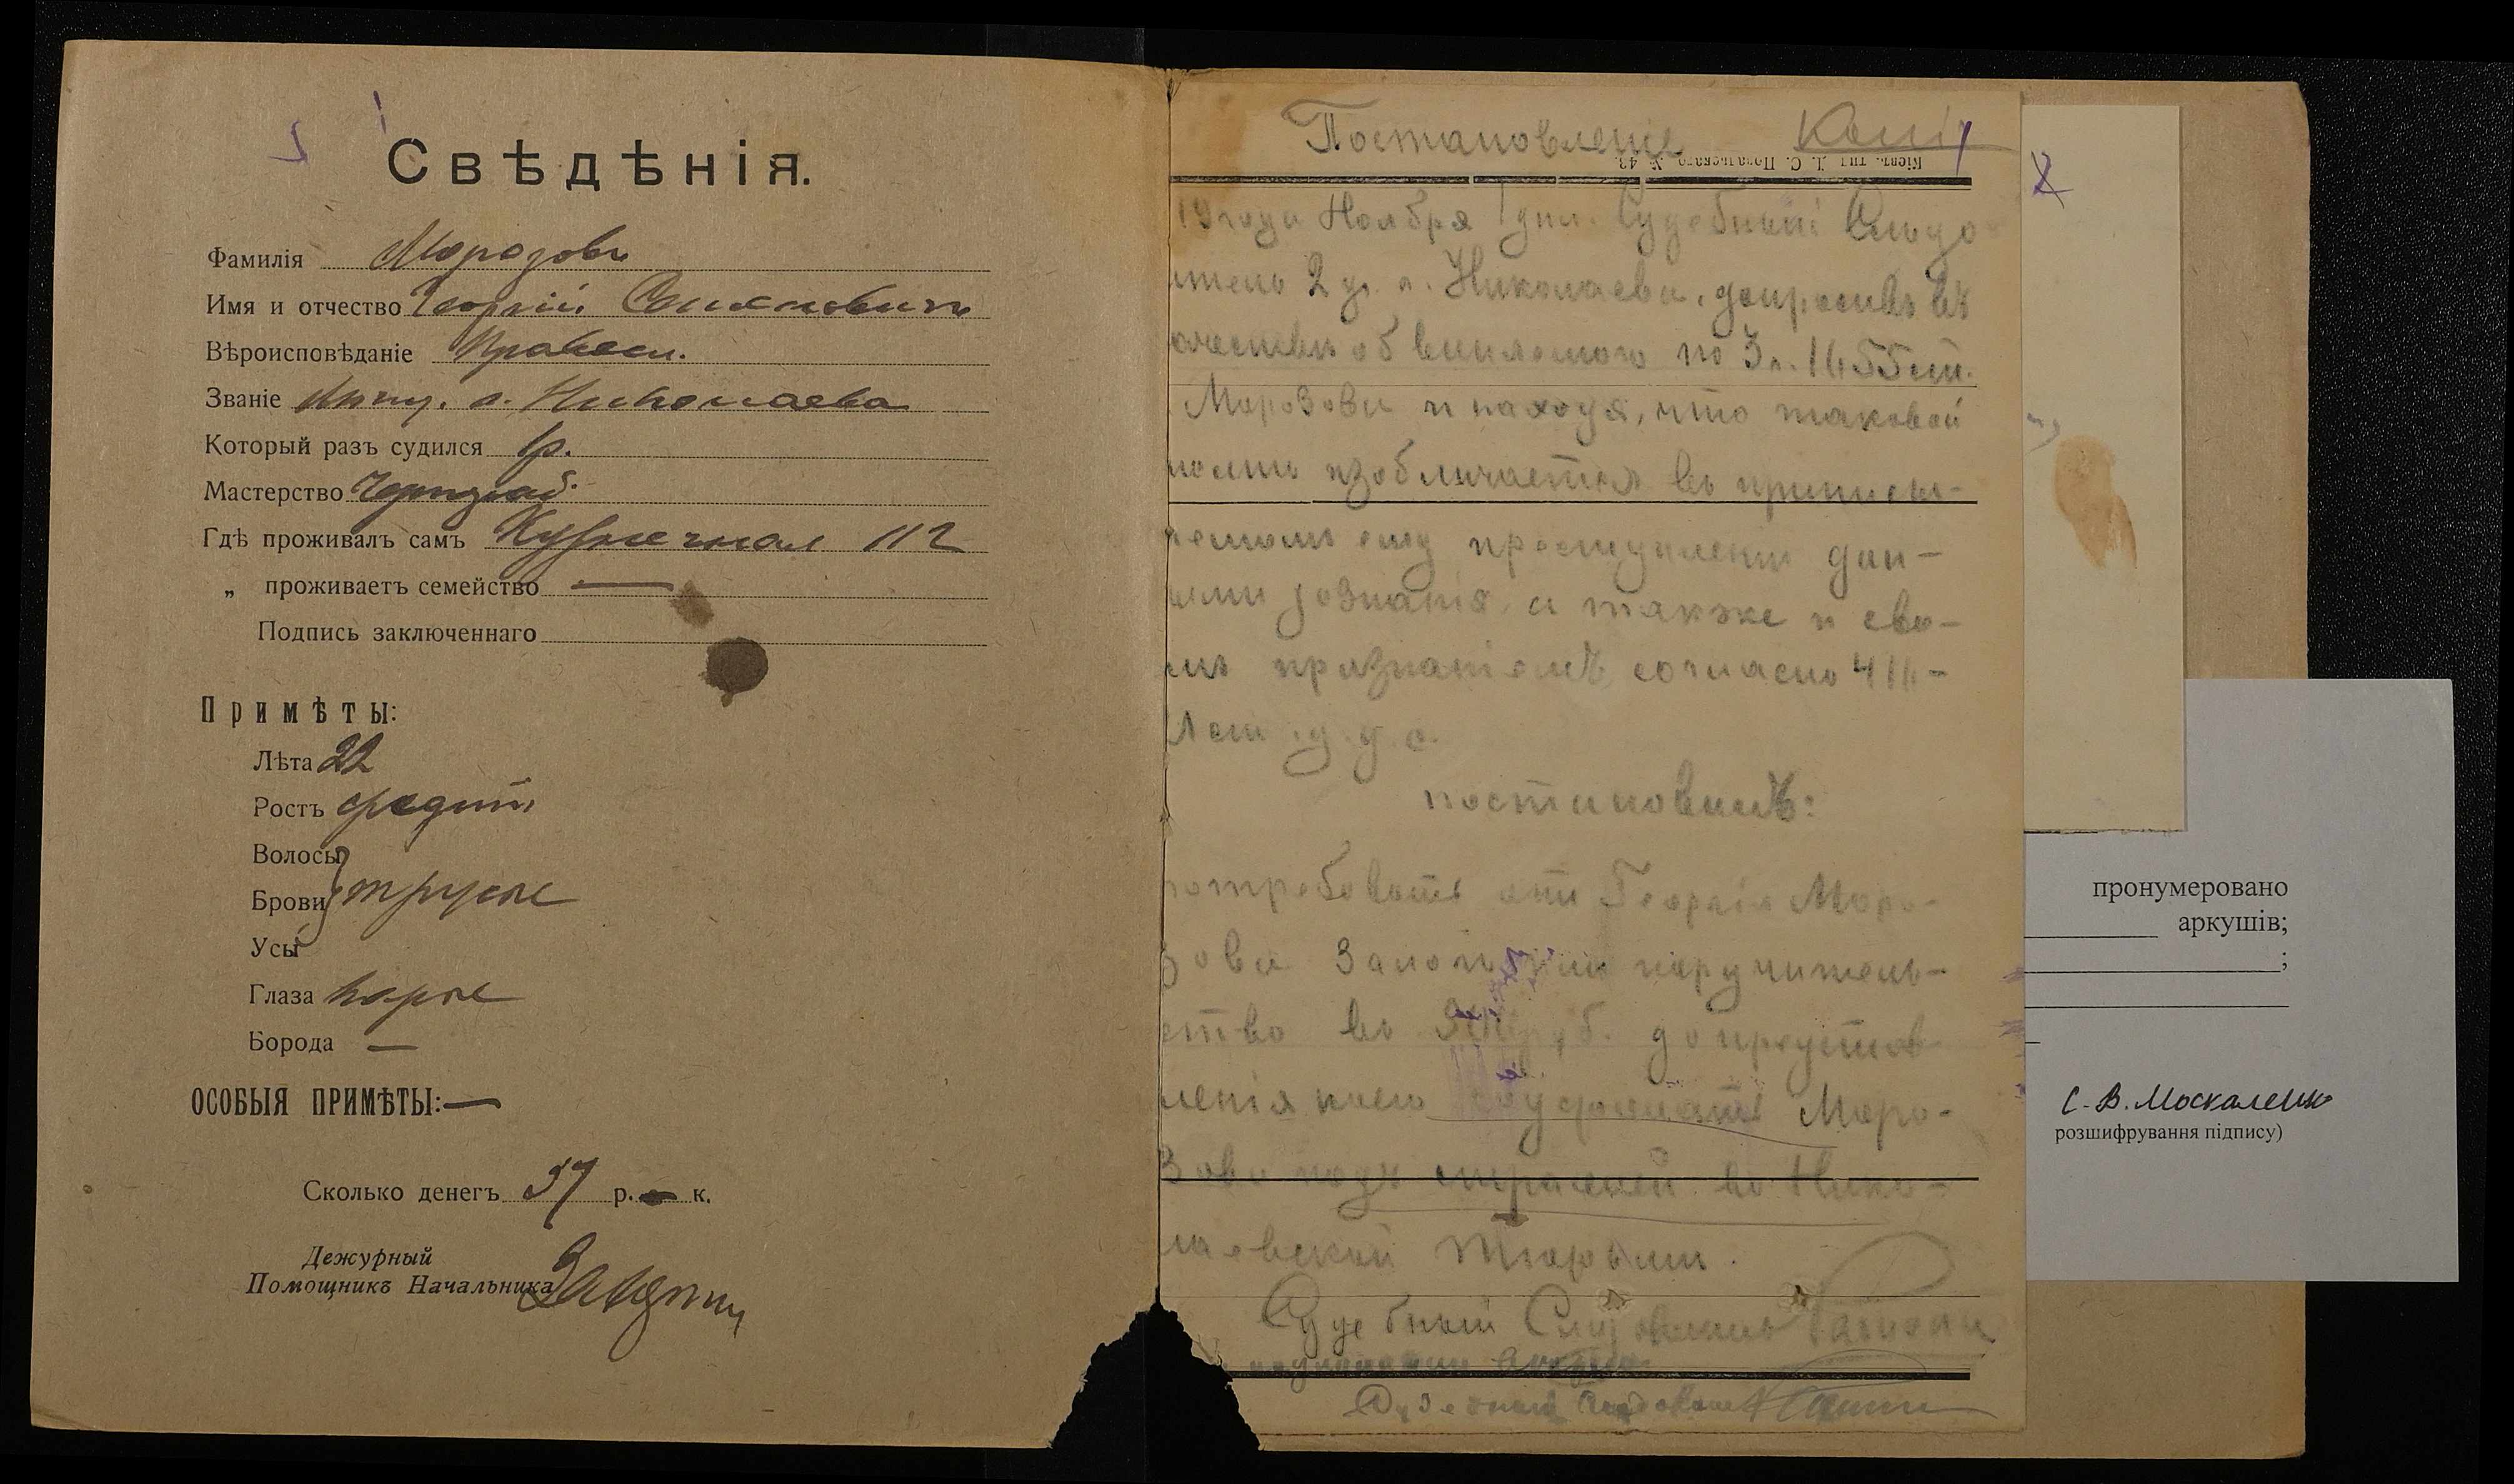 Свѣдѣнія.
Фамилія Морозовъ
Имя и отчество Георгій
Вѣроисповѣданіе Правосл.
Званіе г. Николаева
Который разъ судился 1 р.
Мастерство
Гдѣ проживалъ самъ Кузнечная 112
„ проживаетъ семейство —
Подпись заключеннаго
Примѣты:
Лѣта 22
Ростъ средній
Волосы
Брови т русые
Усы
Глаза карые
Борода —
ОСОБЫЯ ПРИМѢТЫ: —
Сколько денегъ 37 р. — к.
Дежурный
Помощникъ Начальника
Постановленіе Копія
Кіевъ, тип. № 43.
19 года Ноября 1 дня. Судебный Слѣдо-
2 у. г. Николаева, допросивъ въ
обвиняемого по 3 ч. 1455 ст.
Морозова и находя, что таковой
изобличается въ приписы-
ему преступленіи дан-
дознанія а также и сво-
признаніемъ согласно 416-
ст. у. у. с.
постановилъ:
потребовать отъ Георгія Моро-
зова поручитель-
ство въ руб. до представ
ленія коего содержать Моро-
зова подъ стражей въ Нико-
лаевской тюрьмѣ.
Судебный Слѣдователь
Судебный Слѣдователь
пронумеровано
аркушів;
;
С. В. Москаленко
розшифрування підпису)